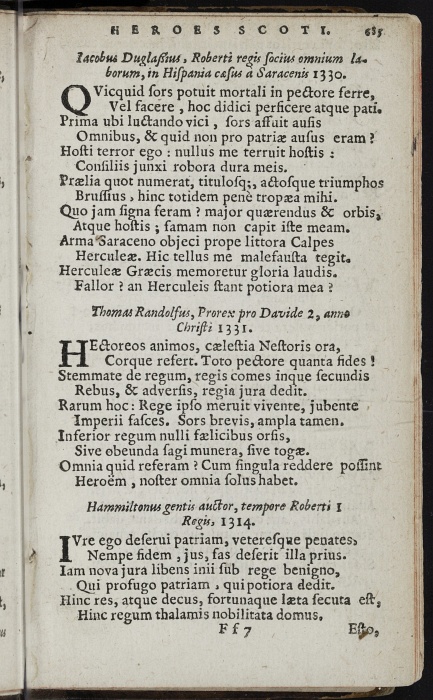 HEROES SCOTI. 685
Iacobus Duglaſsius, Roberti regis ſocius omnium la-
borum, in Hiſpania cæſus a Saracenis 1330.
QVicquid ſors potuit mortali in pectore ferre,
Vel facere, hoc didici perficere atque pati.
Prima ubi luctando vici, ſors affuit auſis
Omnibus, & quid non pro patriæ auſus eram?
Hoſti terror ego: nullus me terruit hoſtis:
Conſiliis junxi robora dura meis.
Prælia quot numerat, tituloſq;, actoſque triumphos
Bruſſius, hinc totidem penè tropæa mihi.
Quo jam ſigna feram? major quærendus & orbis,
Atque hoſtis; famam non capit iſte meam.
Arma Saraceno objeci prope littora Calpes
Herculeæ. Hic tellus me malefauſta tegit.
Herculeæ Græcis memoretur gloria laudis.
Fallor? an Herculeis ſtant potiora mea?
Thomas Randolfus, Prorex pro Davide 2, anno
Chriſti 1331.
HEctoreos animos, cæleſtia Neſtoris ora,
Corque refert. Toto pectore quanta fides!
Stemmate de regum, regis comes inque ſecundis
Rebus, & adverſis, regia jura dedit.
Rarum hoc: Rege ipſo meruit vivente, jubente
Imperii faſces. Sors brevis, ampla tamen.
Inferior regum nulli fælicibus orſis,
Sive obeunda ſagi munera, ſive togæ.
Omnia quid referam? Cum ſingula reddere poſſint
Heroëm, noſter omnia ſolus habet.
Hammiltonus gentis auctor, tempore Roberti I
Regis, 1314.
IVre ego deſerui patriam, vetereſque penates,
Nempe fidem, jus, fas deſerit illa prius.
Iam nova jura libens inii ſub rege benigno,
Qui profugo patriam, qui potiora dedit.
Hinc res, atque decus, fortunaque læta ſecuta eſt,
Hinc regum thalamis nobilitata domus.
Ff 7 Eſto,